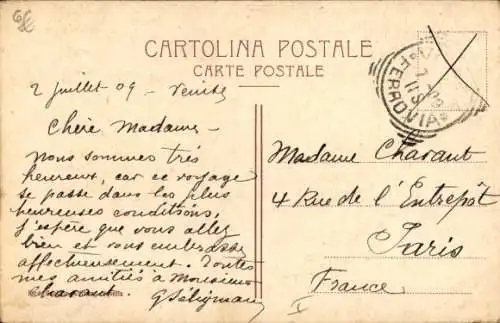 CARTOLINA POSTALE
CARTE POSTALE
2 juillet 09 - Venise
Chère Madame -
Nous sommes très
heureux, car ce voyage
se passe dans les plus
heureuses conditions,
j'espère que vous allez
bien et vous embrasse
affectueusement. Toutes
mes amitiés à Monsieur
Charant.
G Séligman
Madame Charant
4 Rue de l'Entrepôt
Paris
France
FERROVIA